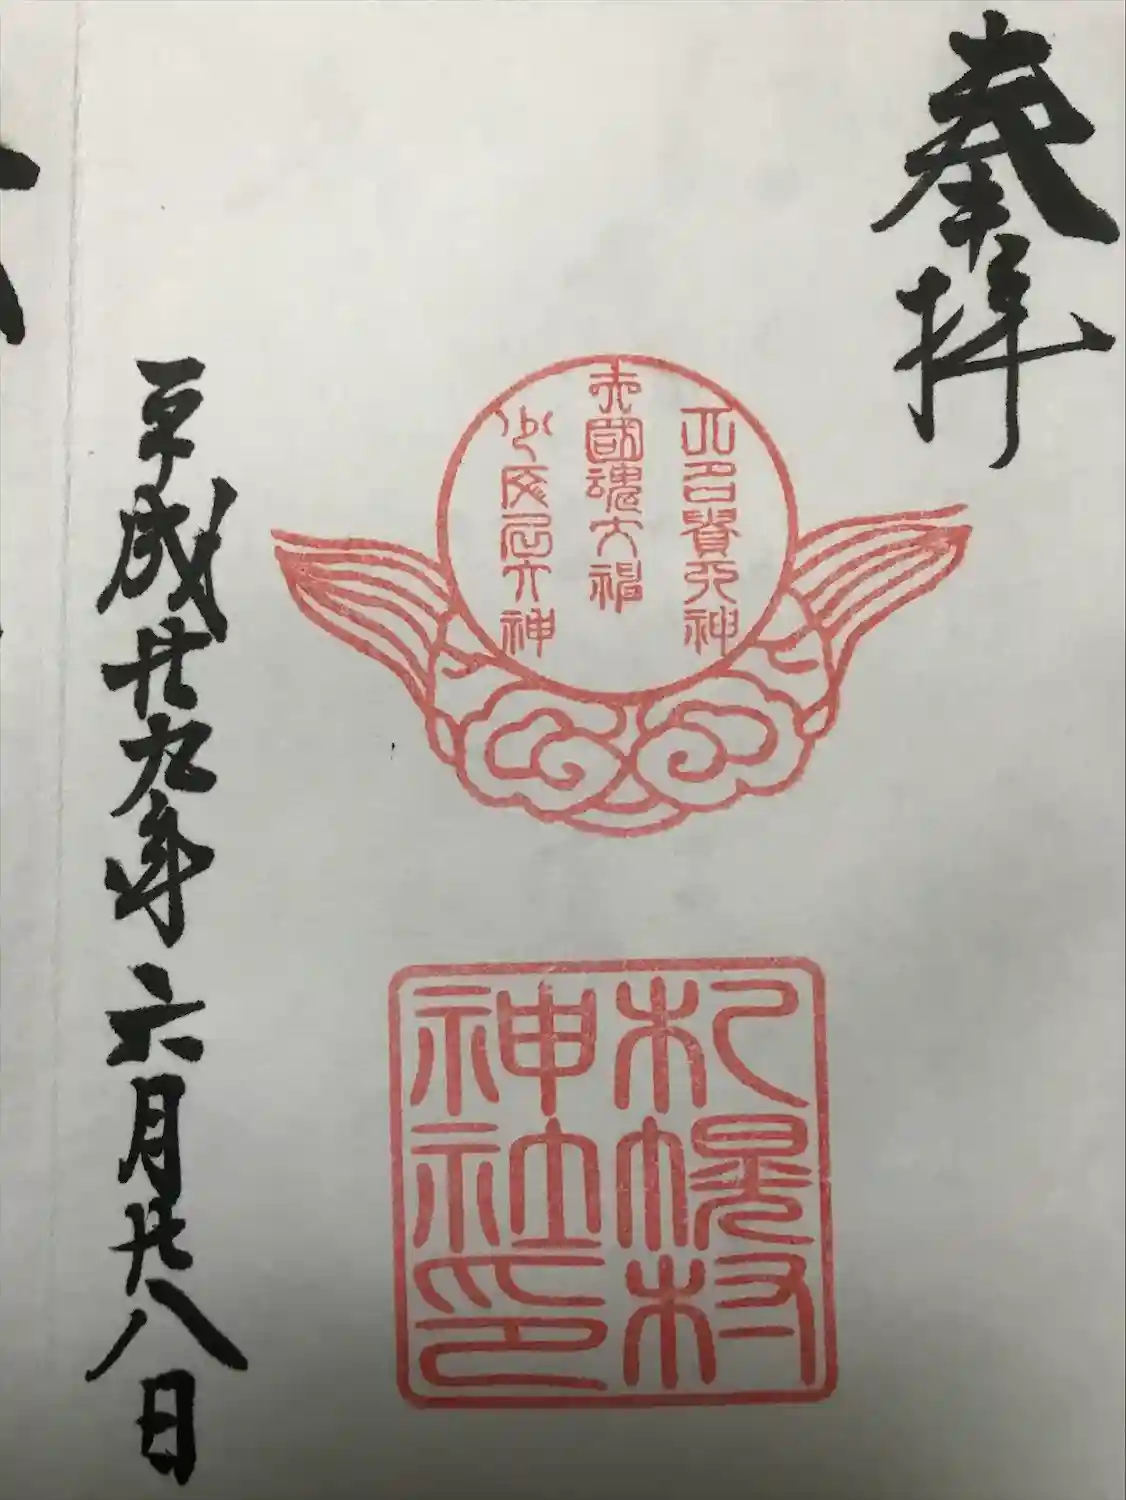 奉拝
大名貴大神
大國魂大神
少彦名大神
札幌村
神社印
平成廿九年六月廿八日